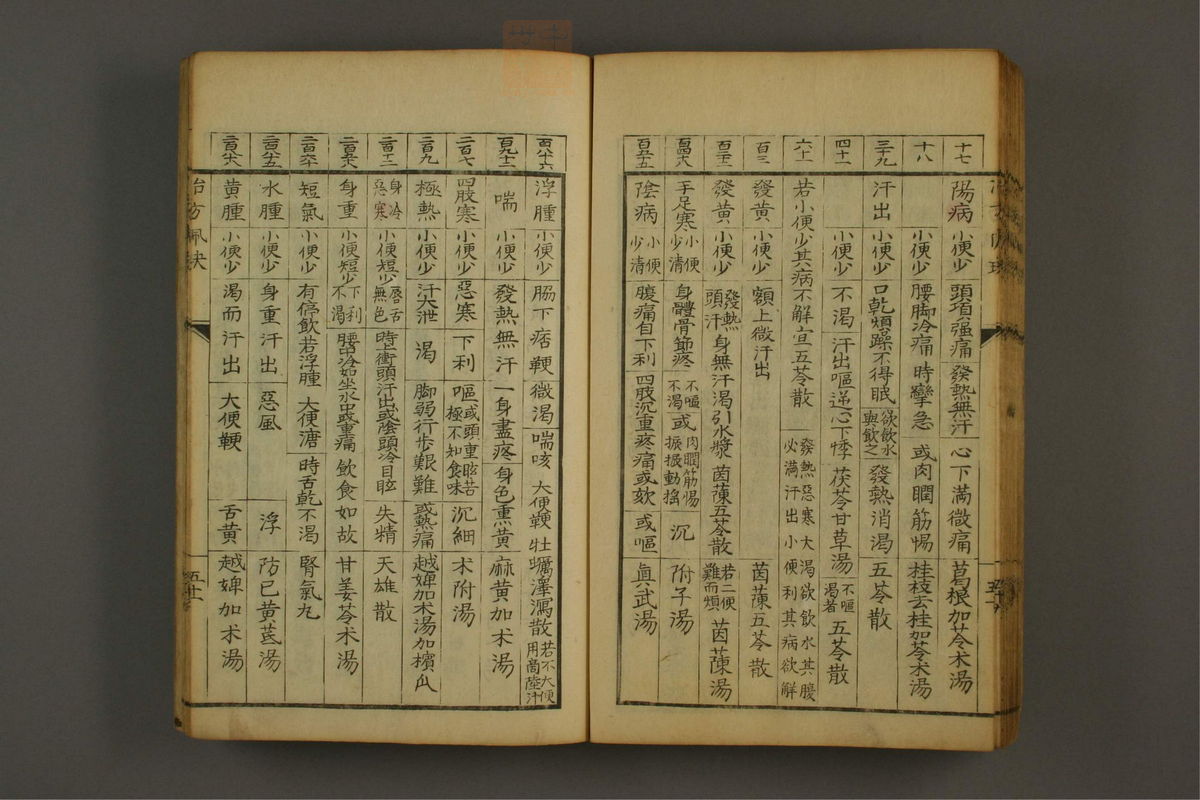 十七 陽病 小便少 頭項强痛 發熱無汗 心下滿微痛 葛根加苓朮湯
十八 小便少 腰脚冷痛 時攣急 或肉瞤筋惕 桂枝去桂加苓朮湯
三十九 汗出 小便少 口乾煩躁不得眠 欲飲水與飲之 發熱消渴 五苓散
四十一 小便少 不渴 汗出嘔逆心下悸 茯苓甘草湯 不嘔渴者 五苓散
六十一 若小便少其病不解宜五苓散 發熱惡寒大渴欲飲水其腹必滿汗出小便利其病欲解
百三 發黃 小便少 額上微汗出 茵蔯五苓散
發黃 小便少 發熱頭汗 身無汗渴引水漿 茵蔯五苓散 若二便難而煩 茵蔯湯
手足寒 小便少清 身體骨節疼 不嘔不渴 或 肉瞤筋惕振振動搖 沉 附子湯
陰病 小便少清 腹痛自下利 四肢沉重疼痛或欬 或嘔 眞武湯
浮腫 小便少 脇下痞鞕 微渴 喘咳 大便鞕 牡蠣澤瀉散 若不大便用商陸汁
喘 小便少 發熱無汗 一身盡疼 身色熏黃 麻黃加朮湯
二百七 四肢寒 小便少 惡寒 下利 嘔 或頭重眩苦極不知食味 沉細 朮附湯
二百九 極熱 小便少 汗大泄 渴 脚弱行步艱難 或熱痛 越婢加朮湯加檳
身冷惡寒 小便短少 唇舌無色 時上衝頭汗出或陰頭冷目眩 失精 天雄散
身重 小便短少 下利不渴 腰中冷如坐水中或重痛 飲食如故 甘姜苓朮湯
短氣 小便少 有停飲若浮腫 大便溏 時舌乾不渴 腎氣丸
水腫 小便少 身重汗出 惡風 浮 防已黃芪湯
黃腫 小便少 渴而汗出 大便鞕 舌黃 越婢加朮湯